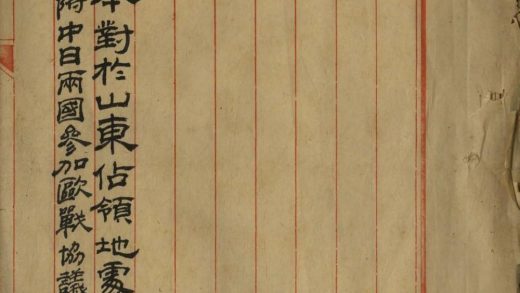 對於山東佔領地處
附中日兩國參加歐戰協議